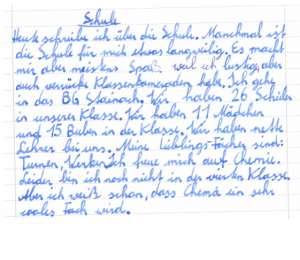 Schule
Heute schreibe ich über die Schule. Manchmal ist
die Schule für mich etwas langweilig. Es macht
mir aber meistens Spaß, weil ich lustige, aber
auch verrückte Klassenkameraden habe. Ich gehe
in das BG Stainach. Wir haben 26 Schüler
in unserer Klasse. Wir haben 11 Mädchen
und 15 Buben in der Klasse. Wir haben nette
Lehrer bei uns. Meine Lieblings-Fächer sind:
Turnen, Werken. Ich freue mich auf Chemie.
Leider bin ich noch nicht in der vierten Klasse.
Aber ich weiß schon, dass Chemie ein sehr
cooles Fach wird.